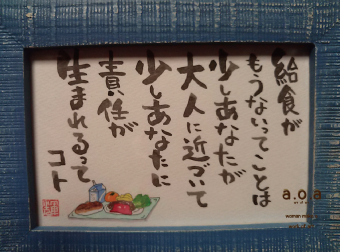 給食が
もうないってことは
少しあなたが
大人に近づいて
少しあなたに
責任が
生まれるって
コト
a.o.a